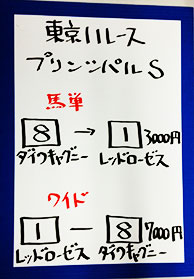 東京11レース
プリンシパルS
馬単
8 → 1 3000円
ダイワキャグニー レッドローゼス
ワイド
1 － 8 7000円
レッドローゼス ダイワキャグニー